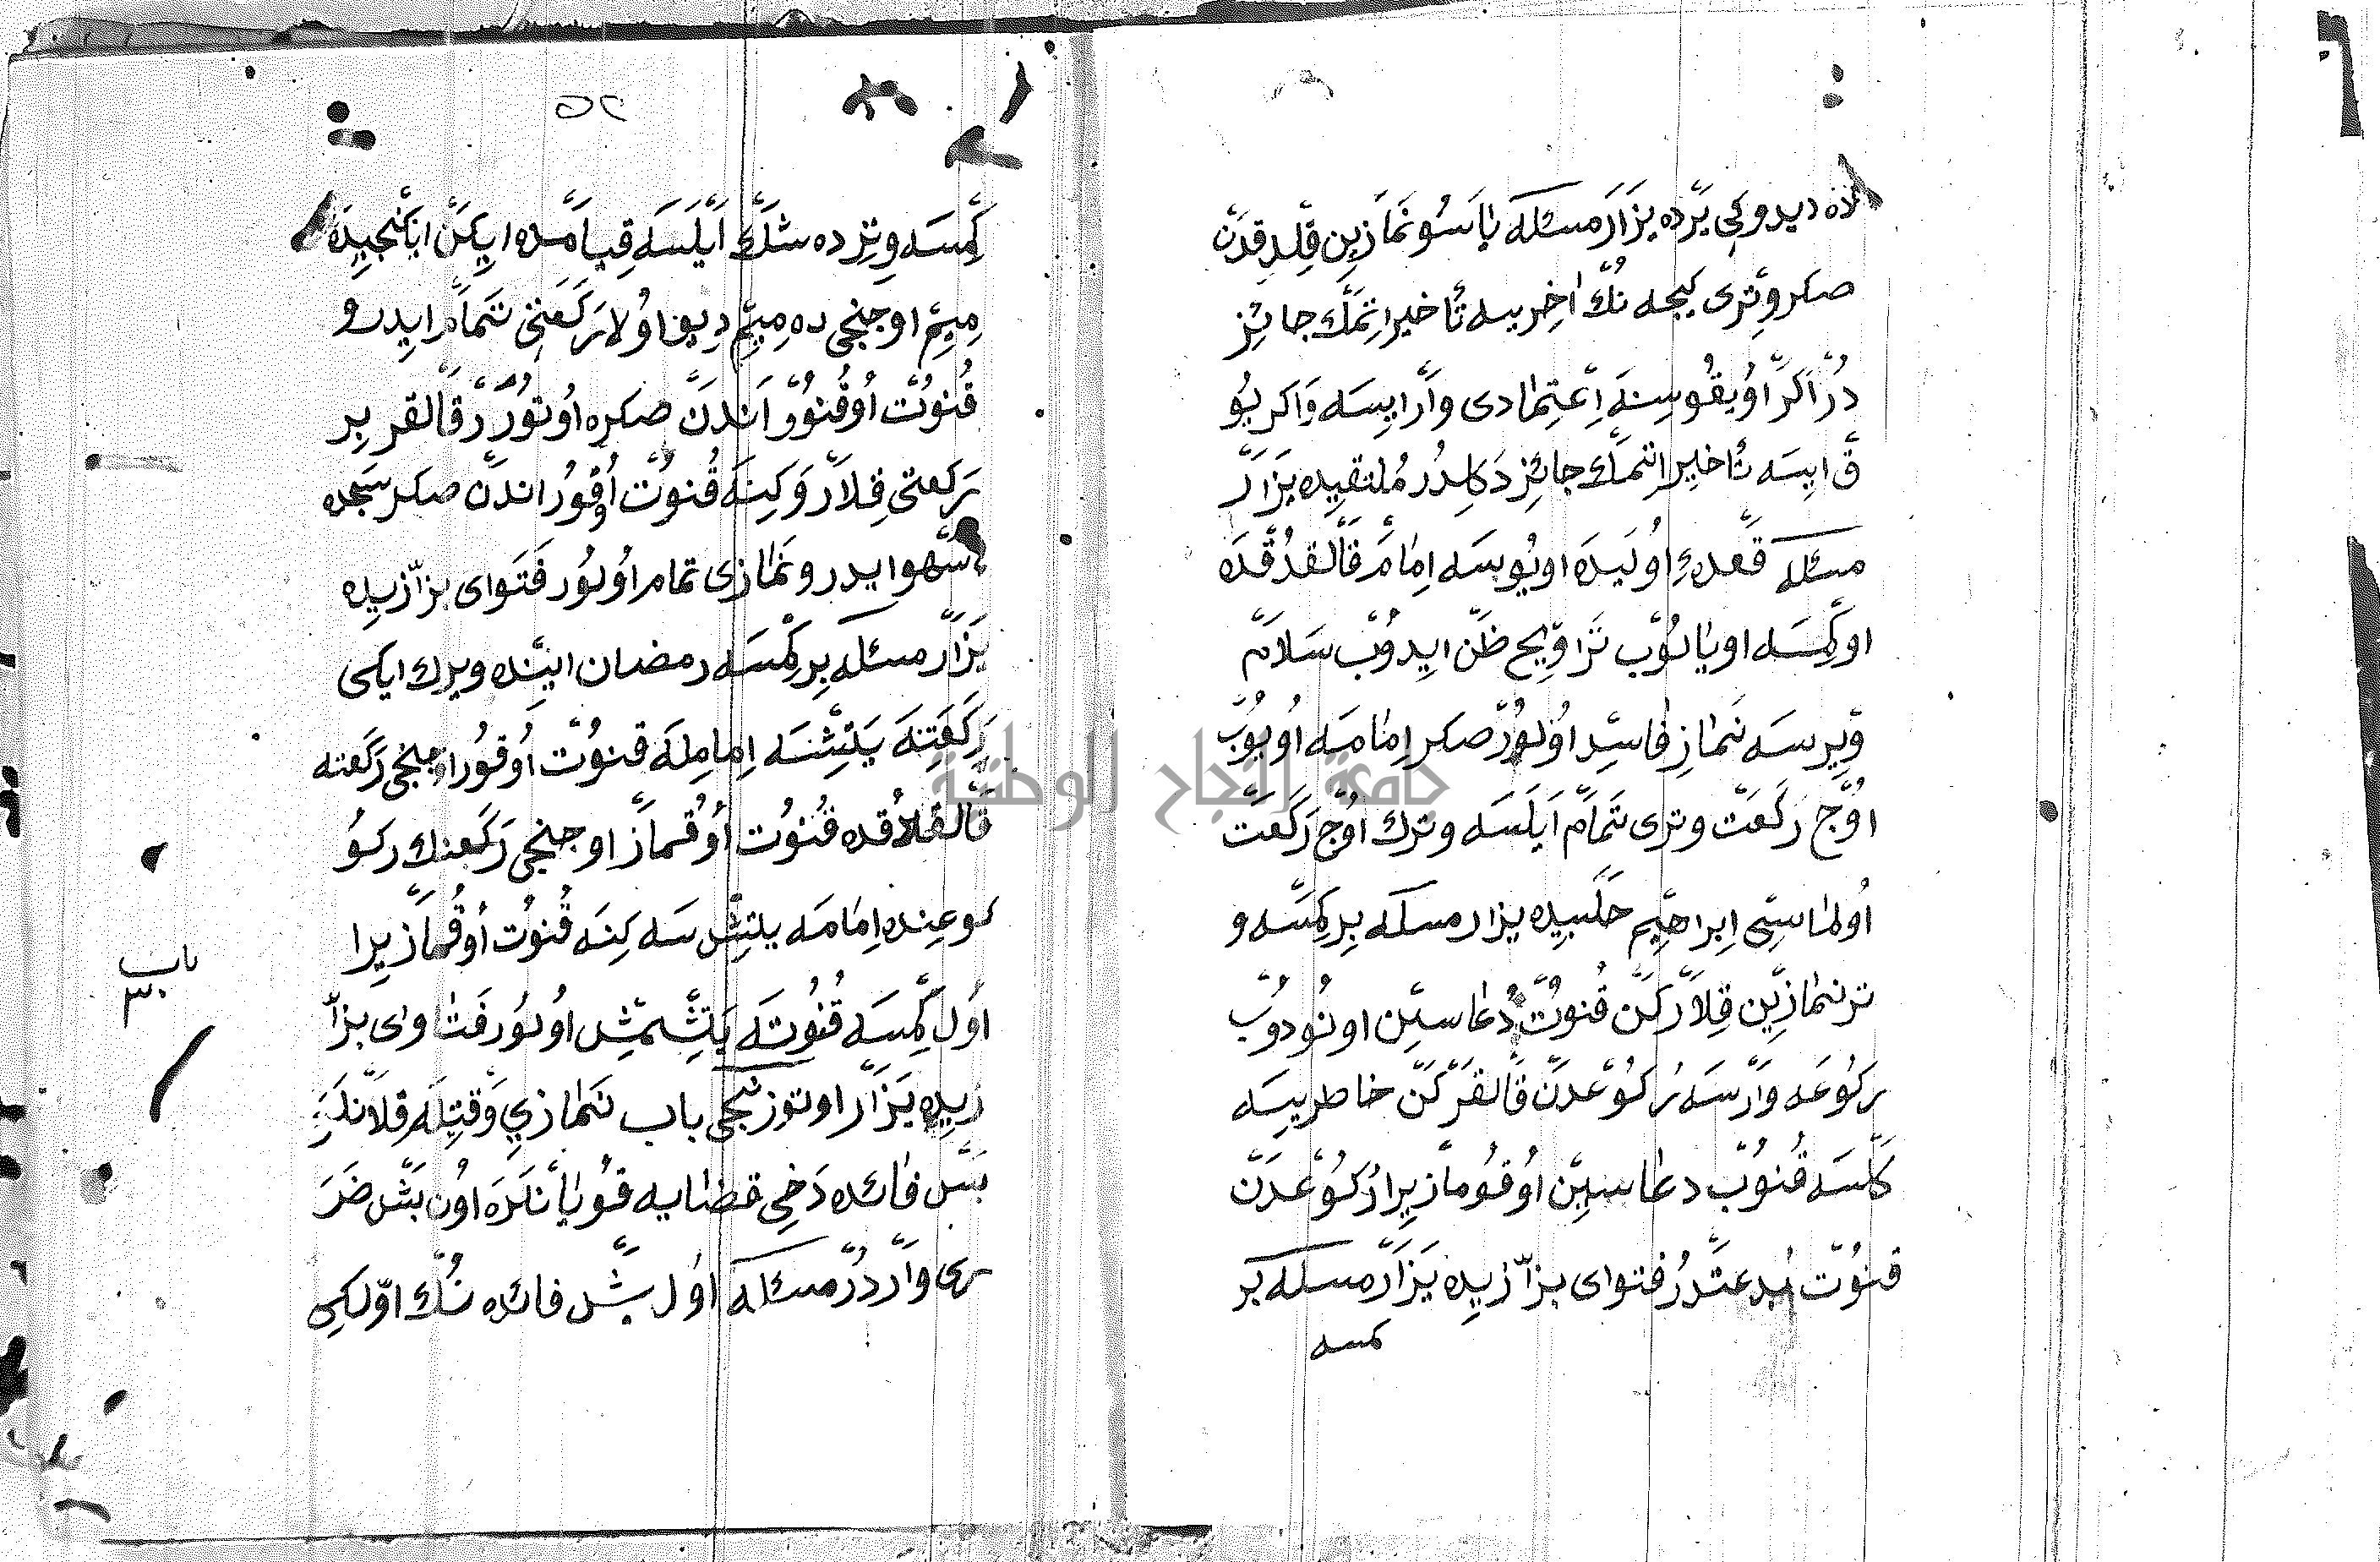 ده ديدوكى يرده يزار مسئله ياسو نمازين قلدقدن
صكر وترى كيجه نك اخريسه تأخير اتمك جائز
در اكر اويقوسنه اعتمادى وار ايسه و اكر يو
ق ايسه تأخير اتمك جائز دكلدر ملتقيده يزار
مسئله قعدۀ اوليده اويويسه امام قالقدقده
اوكمسه اويانوب تراويح ظن ايدوب سلام
ويرسه نماز فاسد اولور صكر امامه اويوب
اوج ركعت وترى تمام ايلسه وترك اوج ركعت
اولماسى ابراهيم حلبيده يزار مسئله بر كمسه و
تر نمازين قلاركن قنوت دعاسين اونودوب
ركوعه وارسه ركوعدن قالقركن خاطريسه
كلسه قنوب دعاسين اوقوماز زيرا ركوعدن
قنوت بدعتدر فتواى بزازيده يزار مسئله بر
كمسه
٥٢
كمسه وترده شك ايلسه قيامده ايكن ايكنجيده
ميم اوجنجى ده ميم ديو اول ركعتى تمام ايدر و
قنوت اوقنور اندن صكره اوتورر قالقر بر
ركعتى قلار و كنه قنوت اوقور اندن صكر سجده
سهو ايدر و نمازى تمام اولور فتواى بزازيده
يزار مسئله بر كمسه رمضان اينده ويرك ايكى
ركعتنه يتشسه امامله قنوت اوقور اوجنجى ركعته
قالقدقده قنوت اوقماز اوجنجى ركعتك ركو
كوعنده امامه يتشسه كنه قنوت اوقماز زيرا
اول كمسه قنوته يتشمش اولور فتاواى بزا
زيده يزار اوتوزنجى باب نمازى وقتله قلانلر
بش فائده دخى قضايه قويانلره اون بش ضر
رى واردر مسئله اول بش فائده نك اولكى
باب
٣٠
جامعة النجاح الوطنية